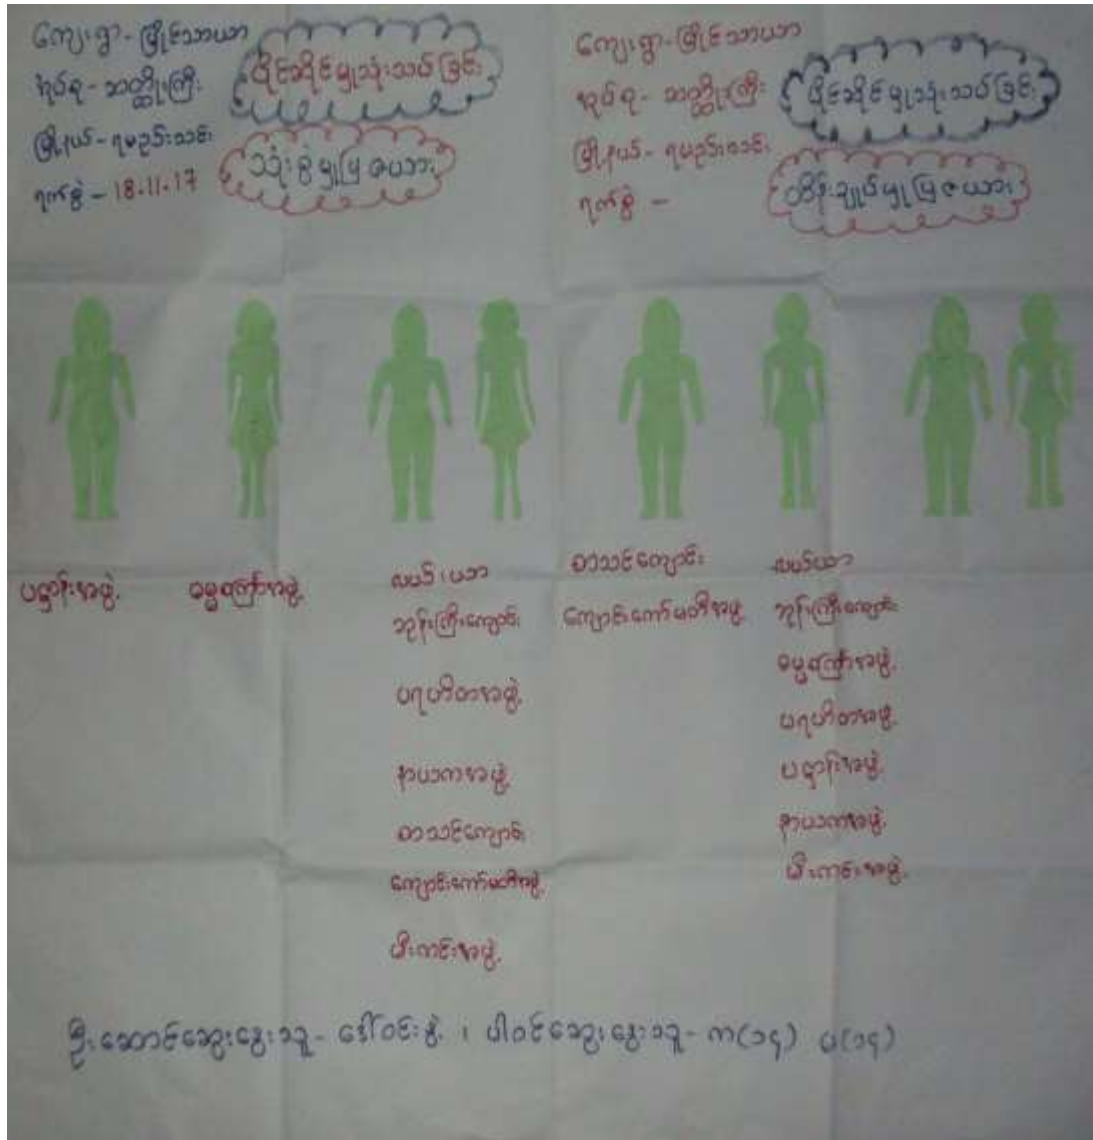 ကျေးရွာ- မြိုင်သာယာ
အုပ်စု - ဆတ္ထိုးကြီး
မြို့နယ် - ရမည်းသင်း
ရက်စွဲ - 18.11.17
ပိုင်ဆိုင်မှုသုံးသပ်ခြင်း
သုံးစွဲမှုပြဇယား
ကျေးရွာ- မြိုင်သာယာ
အုပ်စု- ဆတ္ထိုးကြီး
မြို့နယ် - ရမည်းသင်း
ရက်စွဲ -
ပိုင်ဆိုင်မှုသုံးသပ်ခြင်း
ထိန်းချုပ်မှုပြဇယား
ပဋ္ဌာန်းအဖွဲ့
ဓမ္မစကြာအဖွဲ့
လယ်၊ယာ
ဘုန်းကြီးကျောင်း
ပရဟိတအဖွဲ့
နာယကအဖွဲ့
စာသင်ကျောင်း
ကျောင်းကော်မတီအဖွဲ့
မီးကင်းအဖွဲ့
စာသင်ကျောင်း
ကျောင်းကော်မတီအဖွဲ့
လယ်ယာ
ဘုန်းကြီးကျောင်း
ဓမ္မစကြာအဖွဲ့
ပရဟိတအဖွဲ့
ပဋ္ဌာန်းအဖွဲ့
နာယကအဖွဲ့
မီးကင်းအဖွဲ့
ဦးဆောင်ဆွေးနွေးသူ- ဒေါ်ဝင်းနွဲ့ ၊ ပါဝင်ဆွေးနွေးသူ- က(၁၄) မ(၁၄)